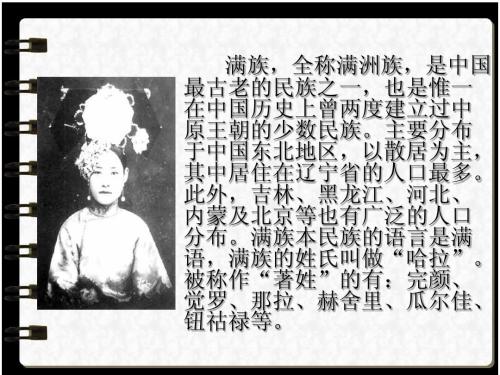 满族，全称满洲族，是中国
最古老的民族之一，也是惟一
在中国历史上曾两度建立过中
原王朝的少数民族。主要分布
于中国东北地区，以散居为主，
其中居住在辽宁省的人口最多。
此外，吉林、黑龙江、河北、
内蒙及北京等也有广泛的人口
分布。满族本民族的语言是满
语，满族的姓氏叫做“哈拉”。
被称作“著姓”的有：完颜、
觉罗、那拉、赫舍里、瓜尔佳、
钮祜禄等。